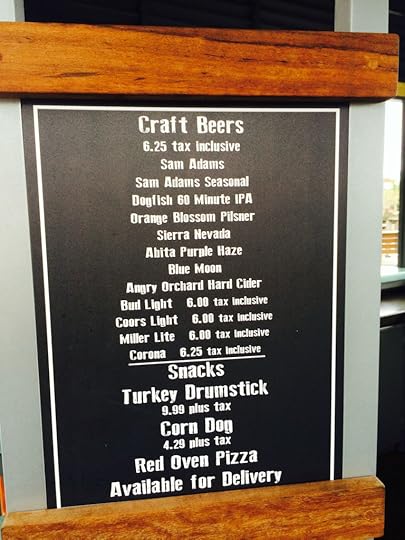 Craft Beers
6.25 tax inclusive
Sam Adams
Sam Adams Seasonal
Dogfish 60 Minute IPA
Orange Blossom Pilsner
Sierra Nevada
Abita Purple Haze
Blue Moon
Angry Orchard Hard Cider
Bud Light 6.00 tax inclusive
Coors Light 6.00 tax inclusive
Miller Lite 6.00 tax inclusive
Corona 6.25 tax inclusive
Snacks
Turkey Drumstick
9.99 plus tax
Corn Dog
4.29 plus tax
Red Oven Pizza
Available for Delivery